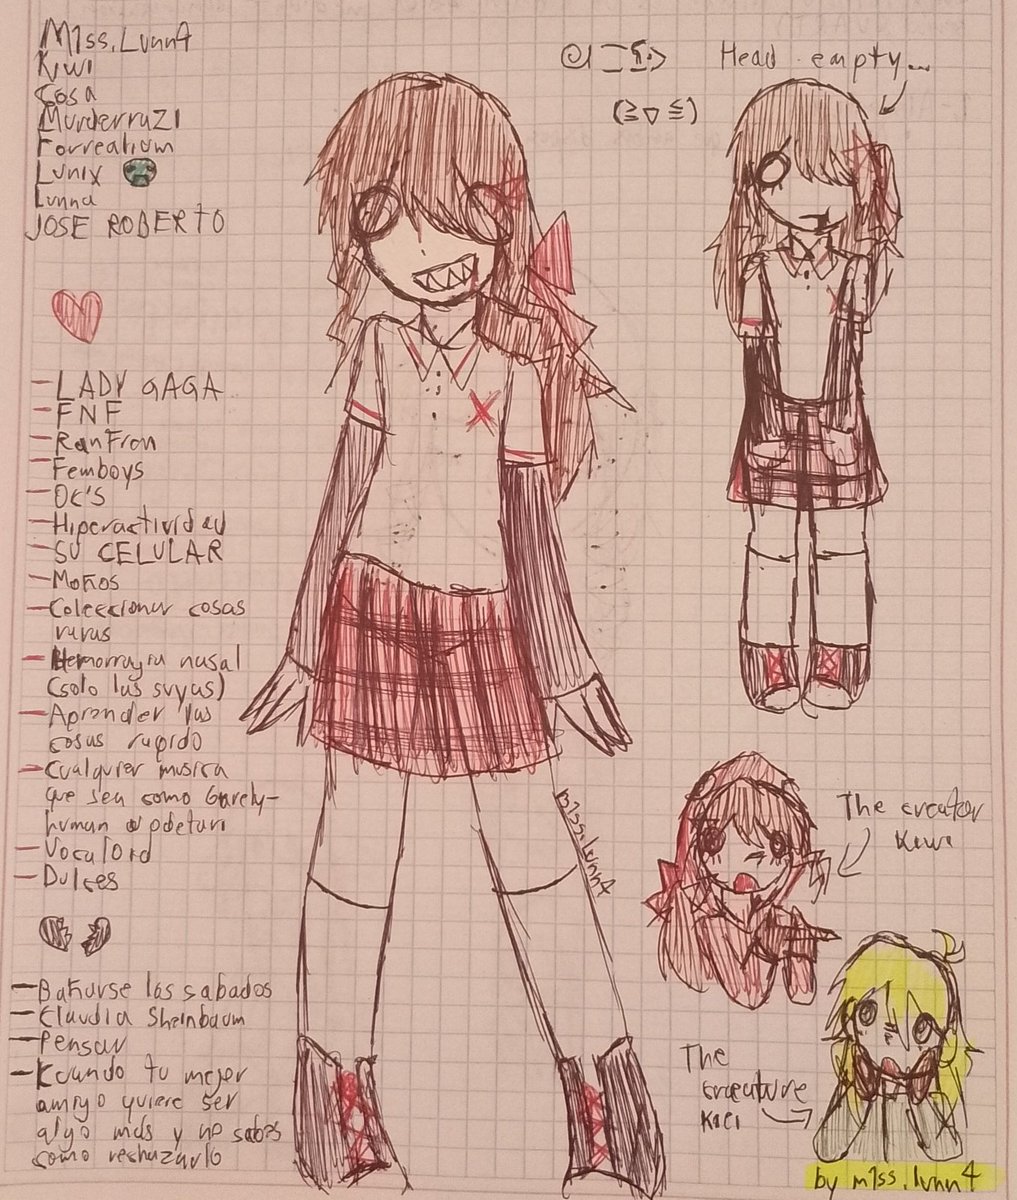 M1ss.Lunn4
Kiwi
Cosa
Murderruzi
Forrealium
Lunix
Lunna
JOSE ROBERTO
- LADY GAGA
- FNF
- RanFren
- Femboys
- OC'S
- Hiperactividad
- SU CELULAR
- Moños
- Coleccionar cosas
raras
- Hemorragia nasal
(solo las suyas)
- Aprender las
cosas rapido
- Cualquier musica
que sea como Garely-
human o odetari
- Vocaloid
- Dulces
- Bañarse los sabados
- Claudia Sheinbaum
- Pensar
- Kuando tu mejor
amigo quiere ser
algo mas y no sabes
como rechazarlo
(≧▽≦)
Head empty...
m1ss.lunn4
The creator
Kiwi
The
creature
by m1ss.lunn4